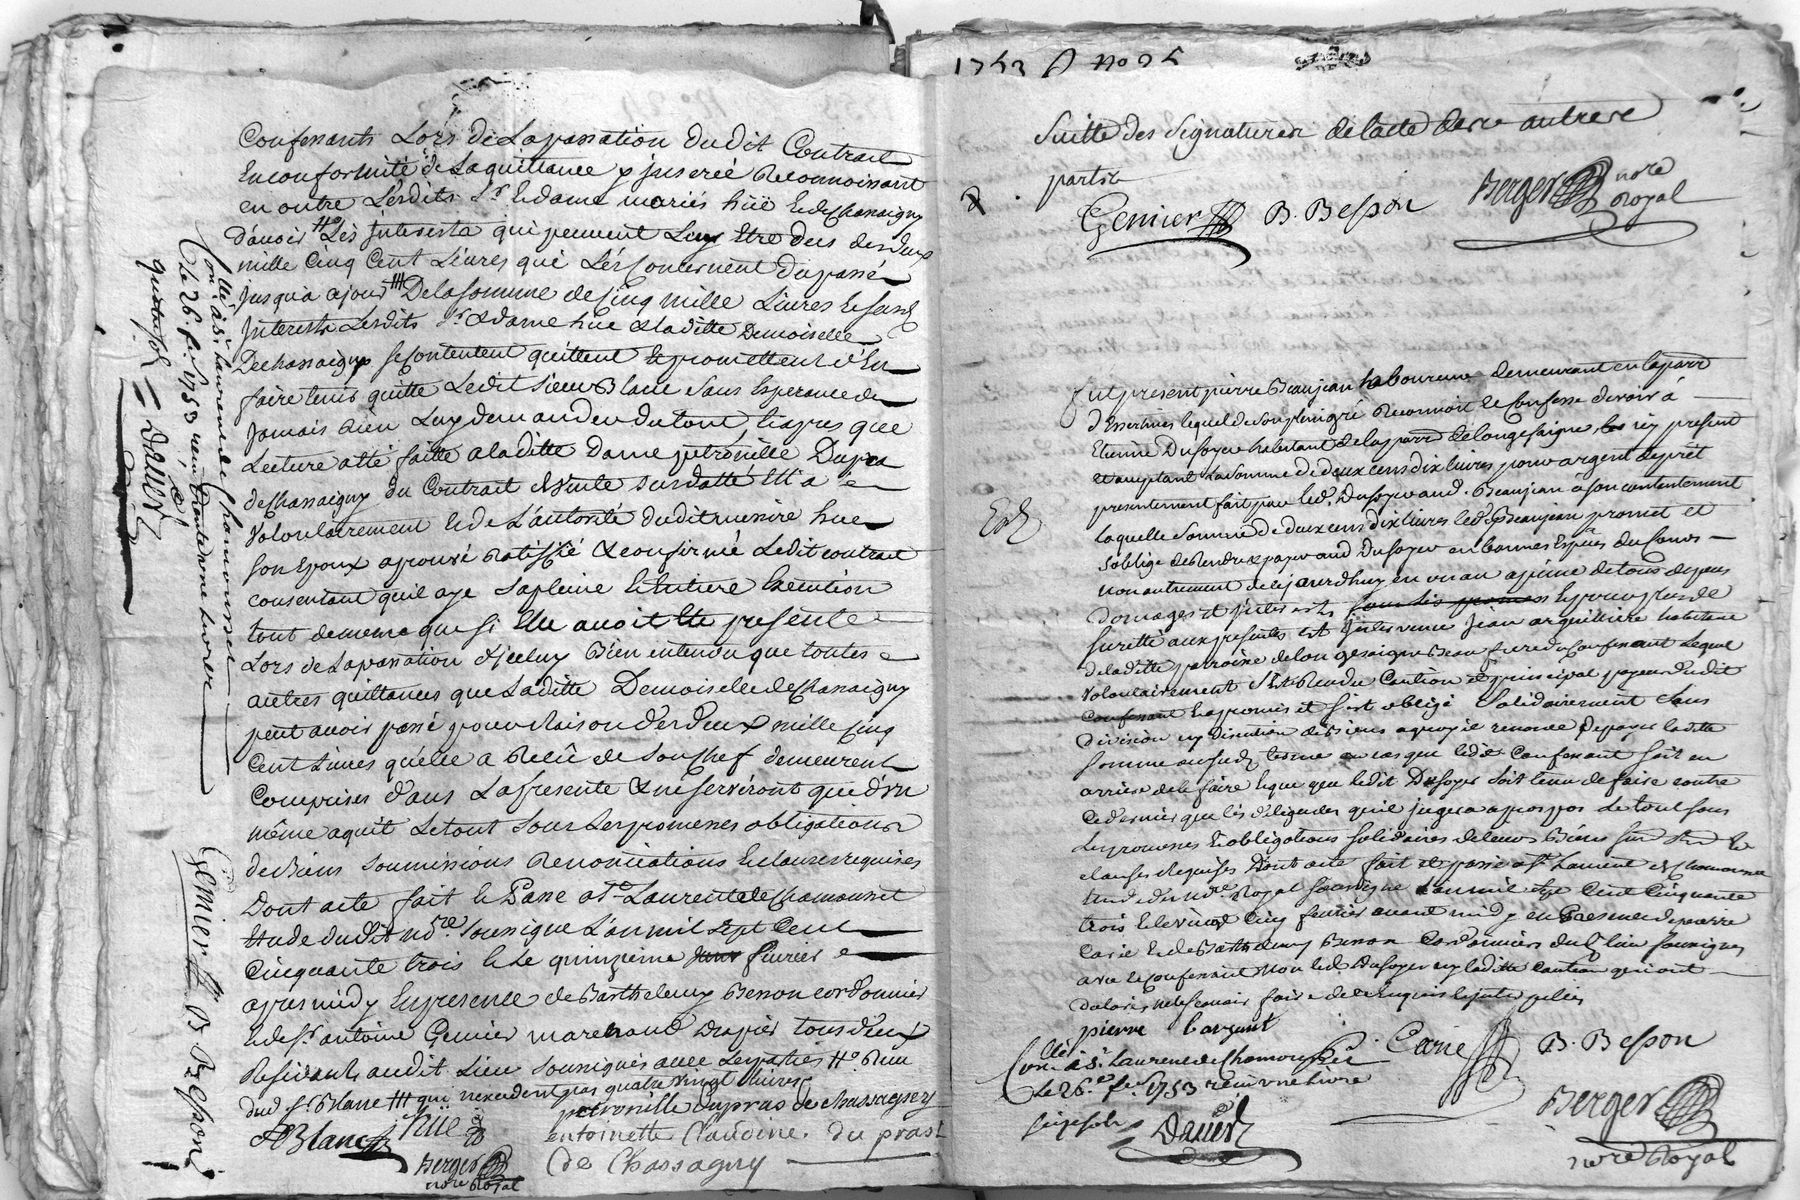 Confessants Lors de Lapassation dudit Contract
En conformité de La quittance y inseréé Reconnoissant
en outre Lesdits Sr. Et dame mariés huë Et de Chassaigny
d'avoir Hº Les jnterests qui peuvent Luy Etre deus des deux
mille Cinq Cent Livres qui Les Concernent du passé
jusqu'a ajour #### De la somme de Cinq mille Livres Et susd
jnterests Lesdits Sr. & dame hue & laditte Demoiselle
De chassaigny se Contentent quittent Et promettent d'En
faire tenir quitte Ledit sieur Blanc sans Esperance de
jamais Rien Luy demander du tout, Et apres que
Lecture a Eté faitte a laditte dame petronille Dupra
de Chassaigny du Contract de vente susdatté Ell'a
Volontairement Et de L'autorité dudit messire hue
son Epoux aprouvé Ratiffié & confirmé Ledit contract
consentant quil aye sa pleine Et Entiere Execution
tout de meme que si Elle avoit Eté presente
Lors de La passation d'jceluy Bien entendu que toutes
autres quittances que Laditte Demoiselle de Chassaigny
peut avoir passé pour Raison des deux mille Cinq
Cent Livres quelle a Reçû de son Chef demeurent
Comprises dans La presente & ne serviront que d'un
même aquit Le tout sous Les promesses obligations
de Biens soumissions Renonciations Et clauses requises
Dont acte fait Et Passé a St. Laurent de Chamousset
Etude dudit nore. sousigné L'an mil sept Cent
Cinquante trois Et Le quinzieme fevrier
apres midy En presence de Barthelemy Besson cordonnier
Et de Sr. antoine Genier marchand drapier tous deux
Residants audit Lieu sousignés avec Les parties Hº Reçu
dud Sr. Blanc #### qui nexcedent pas quatre vingt Livres
petronille dupras de chassagny
ABlanc huë antoinette Claudine du prast
Berger de Chassagny
nore Royal
Conllé à St. Laurent de Chamousset
Le 26. fer. 1753 reçu trente une livres
quatre sols
Daver
Genier B. Besson
1753 No 25
Suitte des Signatures de lacte des autres
parts
Genier B. Besson Berger nore
Royal
fut present pierre Beaujean laboureur demeurant en la parr
d'Essertines lequel de son plein gré Reconnoit Et Confesse devoir à
Etienne Dusoyer habitant de la parr de longesaigne icy present
Et acceptant La somme de deux cens dix livres pour argent de prêt
presentement fait par led. Dusoyer aud. Beaujean à son contentement
laquelle somme de deux cens dix livres led. Beaujean promet et
s'oblige de Rendre & payer aud Dusoyer en bonnes Espèces du Cours
non autrement de ce jourd'huy en un an a peine de tous depens
domages et jnterests Et pour plus grande
suretté aux presentes est jntervenu jean arquilliere habitant
de laditte parroisse de longesaigne Beau frere du Confessant Lequel
volontairement s'est Rendu Caution et principal payeur dudit
Confessant Et a promis et s'est obligé solidairement sans
division ny discution de Biens a quoy il renonce De payer laditte
somme au susd. terme au cas que led. Confessant soit en
arriere de le faire Et que ledit Dusoyer soit tenu de faire contre
Ce dernier que les diligences quil jugera apropos Le tout sous
Les promesses Et obligations solidaires de leurs Biens
clauses Requises Dont acte fait et passé a St. Laurent de Chamousset
Etude du nore. Royal soussigné Lan mil sept Cent Cinquante
trois Et le vingt Cinq fevrier avant midy en Presence de pierre
Carié Et de Barthelemy Besson Cordonniers dud. lieu sousignés
avec le Confessant Non led. Dusoyer ny laditte Caution qui ont
declarés ne le scavoir faire de ce Enquis Et interpellés
pierre
Carié B. Besson
Conllé à St. Laurent de Chamousset
Le 26e. fer. 1753 reçu une livre
seize sols
Daver
Berger
nore Royal